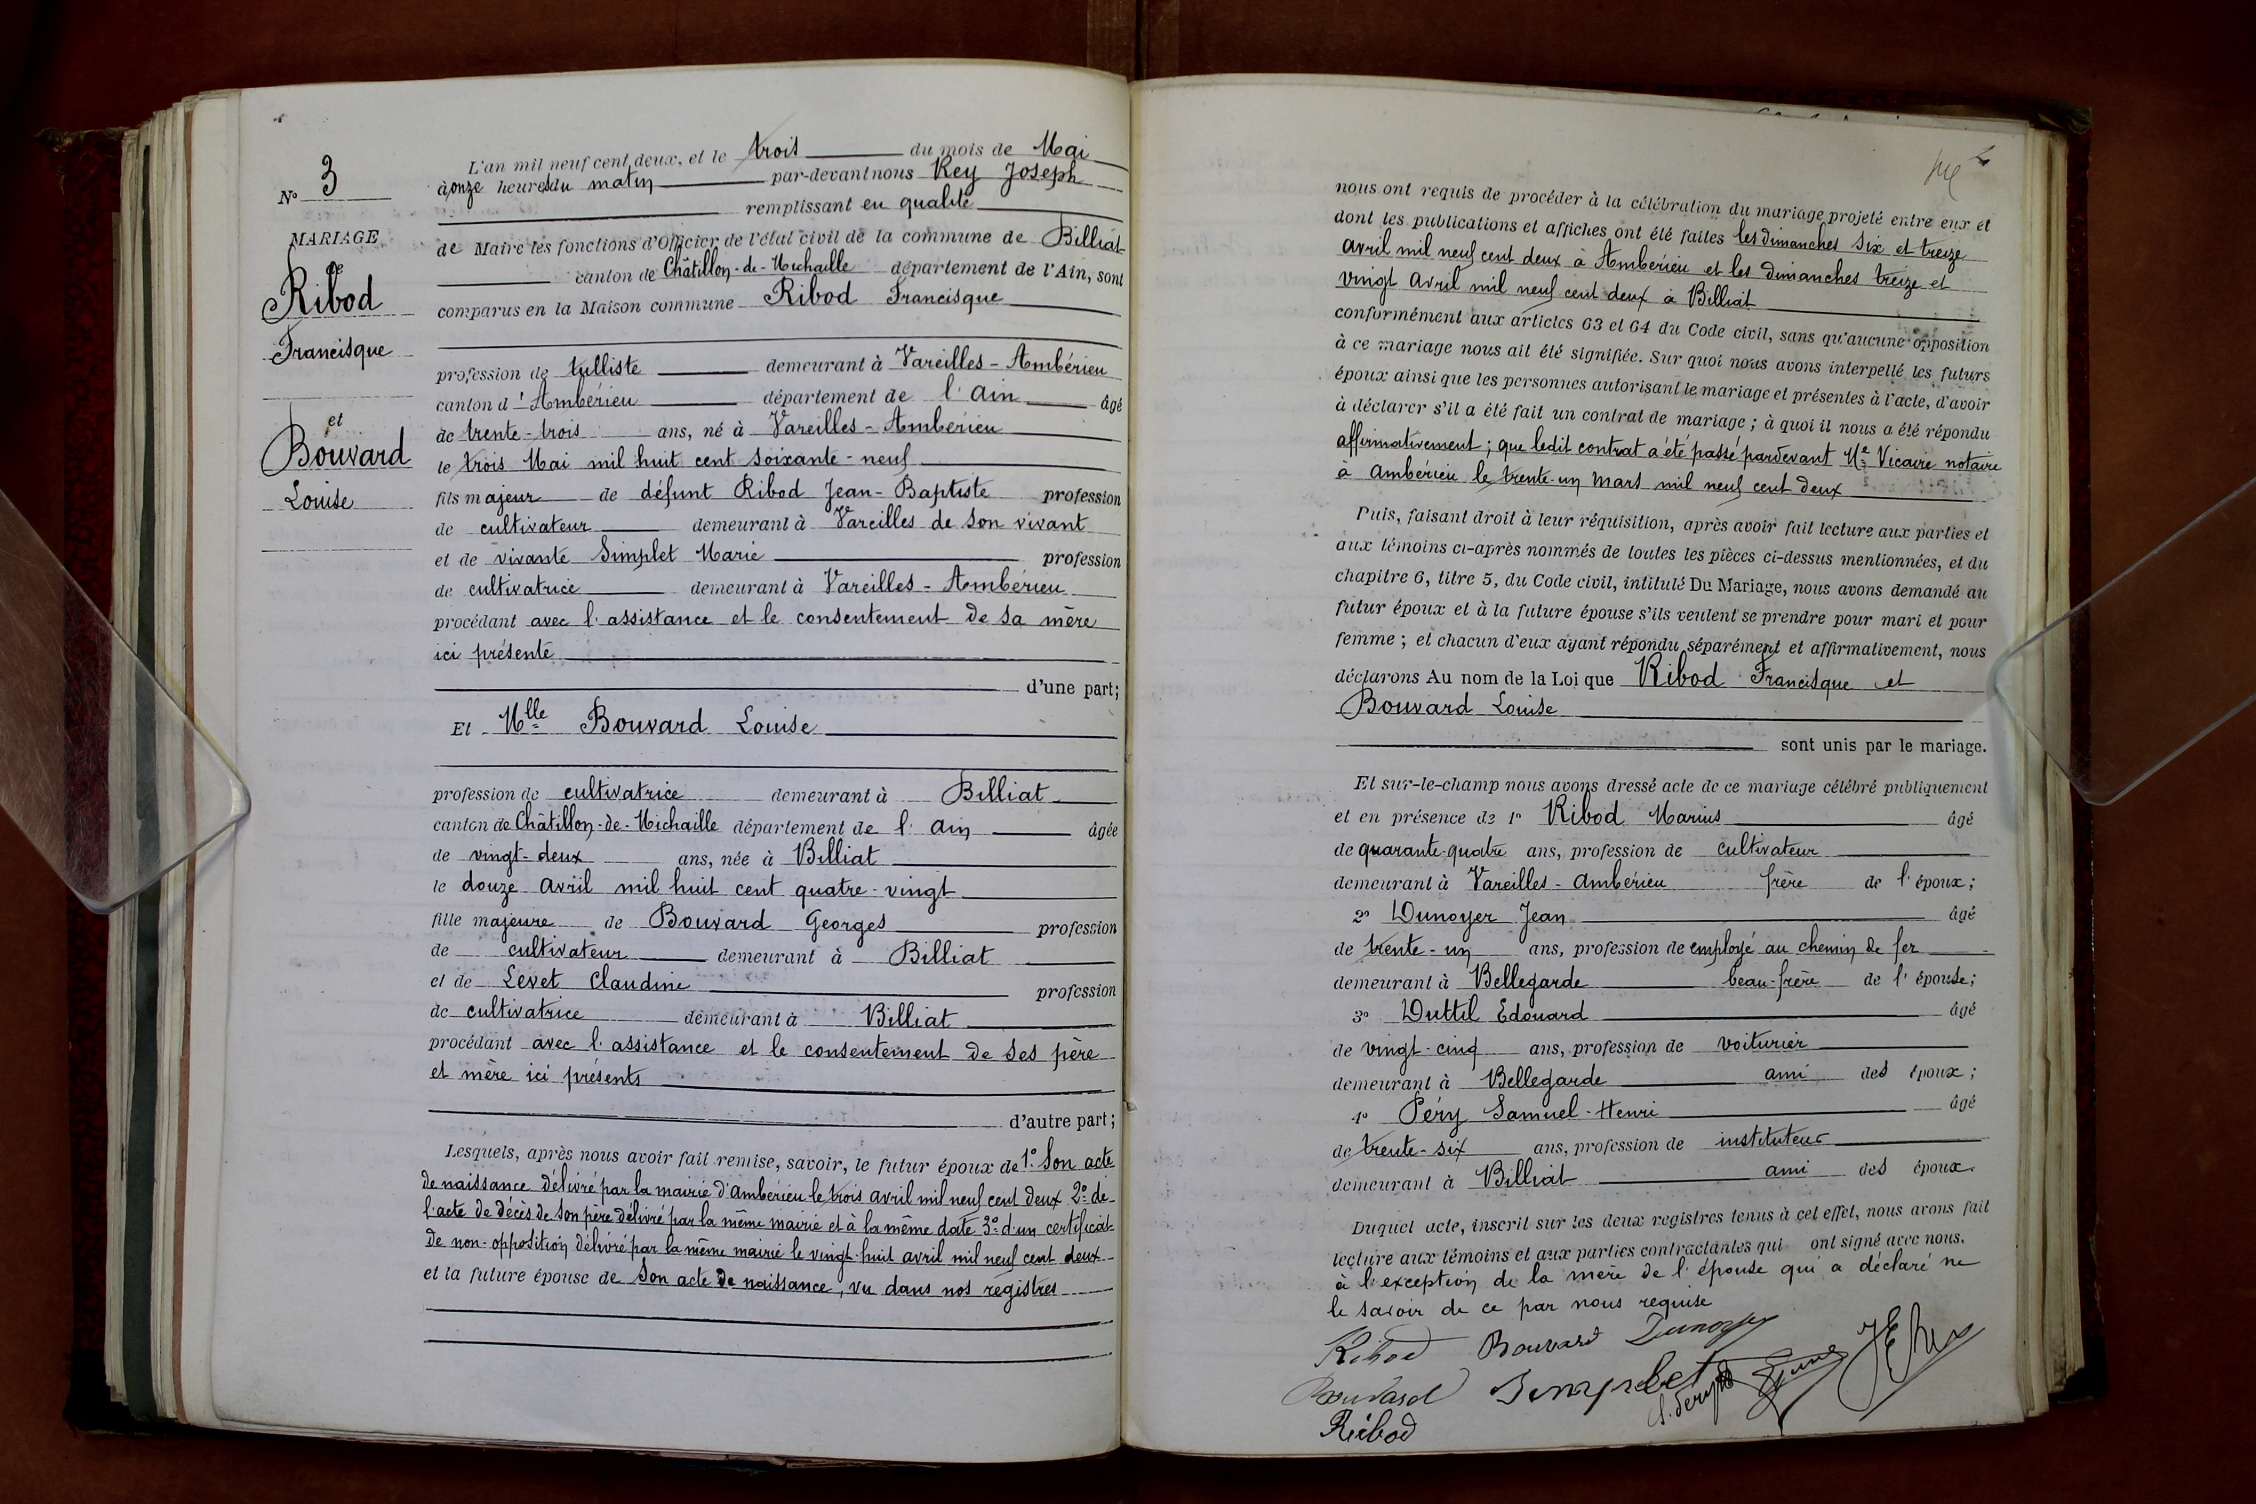 L'an mil neuf cent deux, et le trois du mois de Mai
N° 3
à onze heures du matin par-devant nous Rey Joseph
remplissant en qualité
MARIAGE
de Maire les fonctions d'Officier de l'état civil de la commune de Billiat
de
canton de Châtillon-de-Michaille département de l'Ain, sont
Ribod
comparus en la Maison commune Ribod Francisque
Francisque
profession de tulliste demeurant à Vareilles-Ambérieu
canton d'Ambérieu département de l'Ain âgé
et
de trente-trois ans, né à Vareilles-Ambérieu
Bouvard
le trois Mai mil huit cent soixante-neuf
Louise
fils majeur de défunt Ribod Jean-Baptiste profession
de cultivateur demeurant à Vareilles de son vivant
et de vivante Simplet Marie profession
de cultivatrice demeurant à Vareilles-Ambérieu
procédant avec l'assistance et le consentement de sa mère
ici présente
d'une part;
Et Mlle Bouvard Louise
profession de cultivatrice demeurant à Billiat
canton de Châtillon-de-Michaille département de l'Ain âgée
de vingt-deux ans, née à Billiat
le douze avril mil huit cent quatre-vingt
fille majeure de Bouvard Georges profession
de cultivateur demeurant à Billiat
et de Levet Claudine profession
de cultivatrice demeurant à Billiat
procédant avec l'assistance et le consentement de ses père
et mère ici présents
d'autre part;
Lesquels, après nous avoir fait remise, savoir, le futur époux de 1° Son acte
de naissance délivré par la mairie d'Ambérieu le trois avril mil neuf cent deux 2° de
l'acte de décès de son père délivré par la même mairie et à la même date 3° d'un certificat
de non-opposition délivré par la même mairie le vingt-huit avril mil neuf cent deux
et la future épouse de Son acte de naissance, vu dans nos registres
nous ont requis de procéder à la célébration du mariage projeté entre eux et
dont les publications et affiches ont été faites les dimanches six et treize
avril mil neuf cent deux à Ambérieu et les dimanches treize et
vingt avril mil neuf cent deux à Billiat
conformément aux articles 63 et 64 du Code civil, sans qu'aucune opposition
à ce mariage nous ait été signifiée. Sur quoi nous avons interpellé les futurs
époux ainsi que les personnes autorisant le mariage et présentes à l'acte, d'avoir
à déclarer s'il a été fait un contrat de mariage; à quoi il nous a été répondu
affirmativement; que ledit contrat a été passé pardevant Me Vicaire notaire
à Ambérieu le trente-un mars mil neuf cent deux
Puis, faisant droit à leur réquisition, après avoir fait lecture aux parties et
aux témoins ci-après nommés de toutes les pièces ci-dessus mentionnées, et du
chapitre 6, titre 5, du Code civil, intitulé Du Mariage, nous avons demandé au
futur époux et à la future épouse s'ils veulent se prendre pour mari et pour
femme; et chacun d'eux ayant répondu séparément et affirmativement, nous
déclarons Au nom de la Loi que Ribod Francisque et
Bouvard Louise
sont unis par le mariage.
Et sur-le-champ nous avons dressé acte de ce mariage célébré publiquement
et en présence de 1° Ribod Marius âgé
de quarante-quatre ans, profession de cultivateur
demeurant à Vareilles-Ambérieu frère de l'époux;
2° Dunoyer Jean âgé
de trente-un ans, profession de employé au chemin de fer
demeurant à Bellegarde beau-frère de l'épouse;
3° Duttil Edouard âgé
de vingt-cinq ans, profession de voiturier
demeurant à Bellegarde ami des époux;
4° Péry Samuel-Henri âgé
de trente-six ans, profession de instituteur
demeurant à Billiat ami des époux.
Duquel acte, inscrit sur les deux registres tenus à cet effet, nous avons fait
lecture aux témoins et aux parties contractantes qui ont signé avec nous.
à l'exception de la mère de l'épouse qui a déclaré ne
le savoir de ce par nous requise
Ribod Bouvard Dunoyer
Bouvard Simplet
Ribod